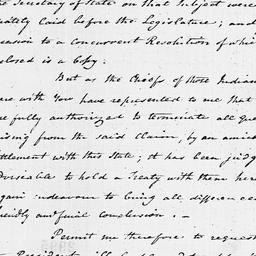 the Secretary of State on that Subject were
ately laid before the Legislature; and
easion to a concurrent Resolution of whi
closed is a Copy.
But as the Chiefs of those Indian
are with You have represented to me that
re fully authorized to terminate all que
ising from the said Claim, by an amica
ettlement with this State; it has been judg
dvisable to hold a Treaty with them here
again endeavour to bring all differences
friendly and final conclusion. –
Permit me therefore to request
President